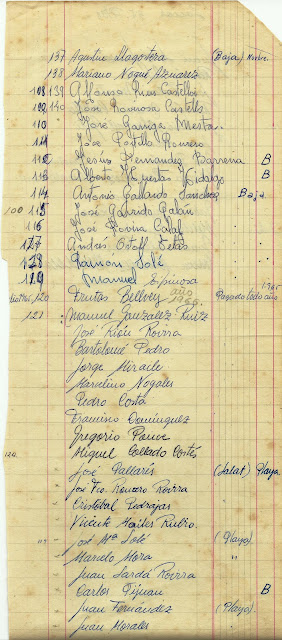 137 Agustin Llagostera (Baja) Novbre.
138 Mariano Nogué Aznarez
108 139 Alfonso Mas Castells
109 140 José Ramosa Castells
110 José Ganiga Mestre
111 Jose Portillo Romero
112 Jesús Fernandez Barrena B
113 Alberto Huertas Hidalgo B
114 Antonio Gallardo Sanchez Baja
100 115 José Garrido Galán
116 José Rovira Calaf
127 Andres
128 Ramón Solé
129 Manuel Espinosa
120 Frutas Bellvey año 1966. Pagado todo año 1965
121 Manuel Gonzalez Ruiz
José Rión Rovira
Bartolomé Pedro
Jorge Miracle
Marcelino Nogales
Pedro Costa
Francisco Domínguez
Gregorio Ponce
120 Miguel Collado Cortés
José Pallarés (Salat) Playa
José Fco. Romero Rovira
Cristóbal Pedrajas
Vicente Rubio.
José Mª Solé (Playa)
Marcelo Mora "
Juan Sardá Rovira
Carlos Tijuan B
Juan Fernández (Playa)
Juan Morales "